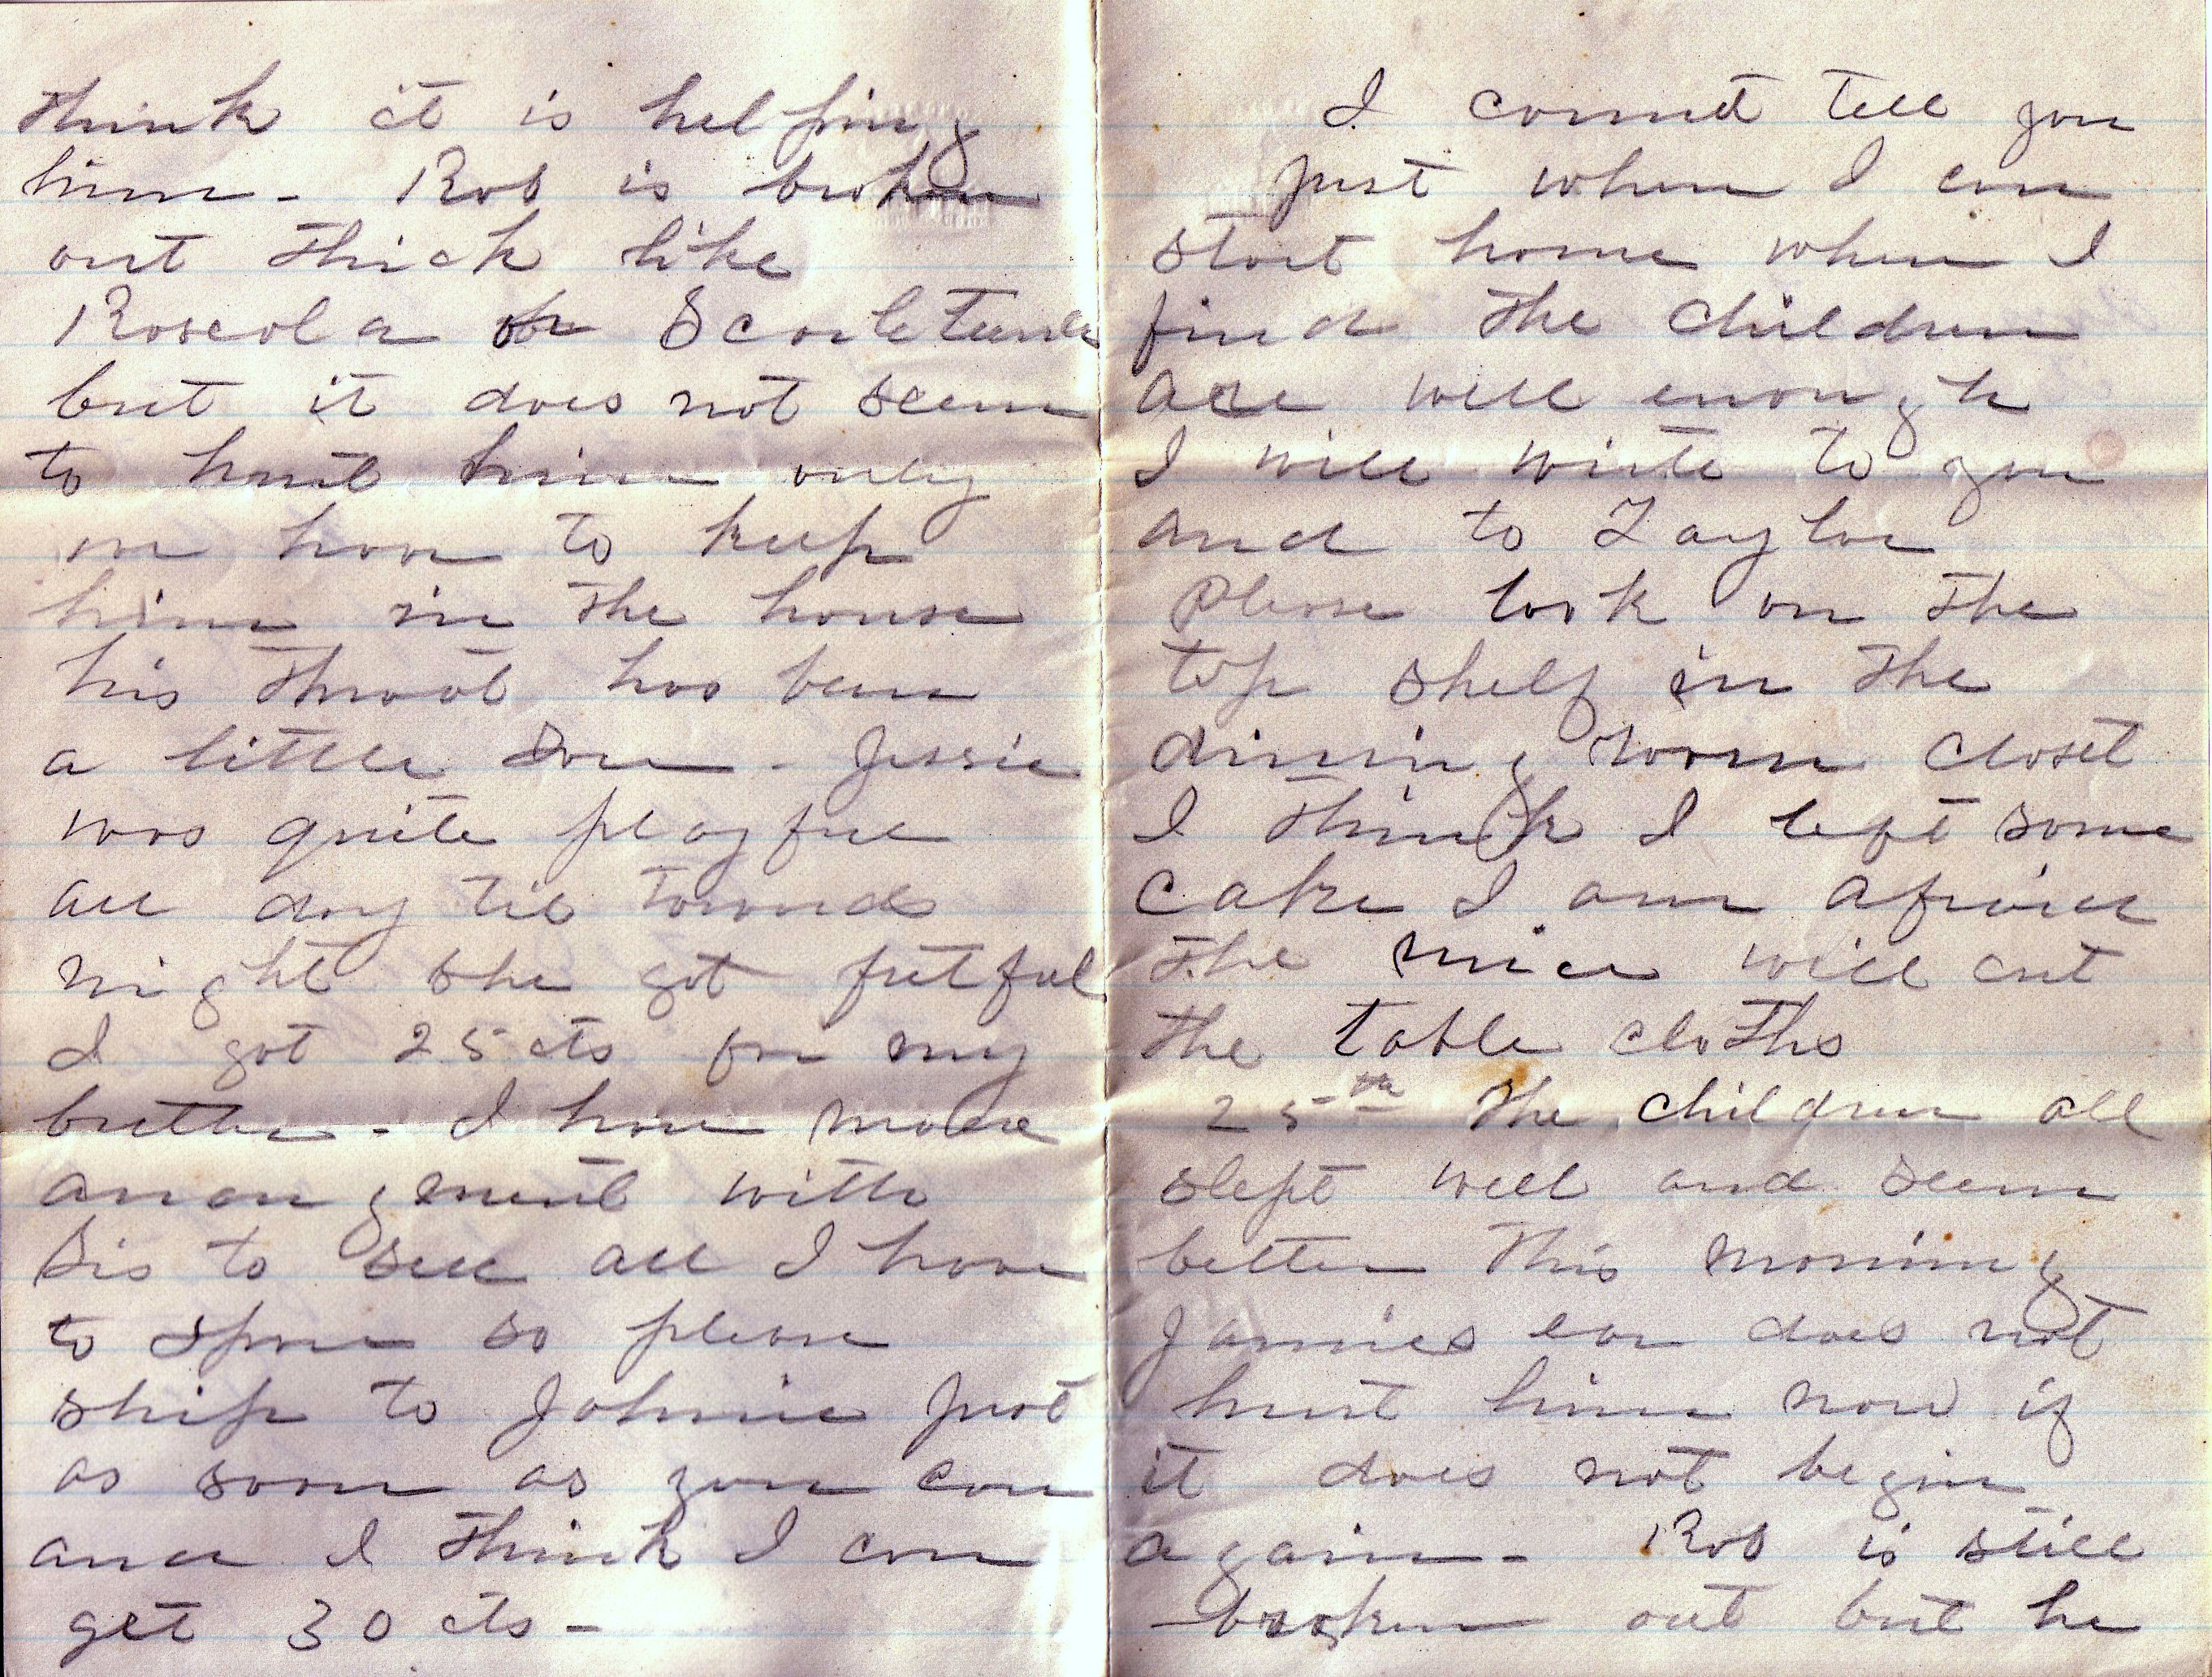 think it is helping
him - Rob is broken
out thick like
Roseola or Scarletina
but it does not seem
to hurt him only
we have to keep
him in the house
his throat has been
a little sore - Jessie
was quite playful
all day till towards
night she got fretful
I got 25 cts for my
butter - I have made
arrangment with
Sis to sell all I have
to spare so please
ship to Johnie just
as soon as you can
and I think I can
get 30 cts -
I cannot tell you
just when I can
start home when I
find the children
are well enough
I will write to you
and to Taylor
Please look on the
top shelf in the
dining room closet
I think I left some
cake I am afraid
the mice will cut
the table cloths
25th The children all
slept well and seem
better this morning
Jamies ear does not
hurt him now if
it does not begin
again - Rob is still
broken out but he